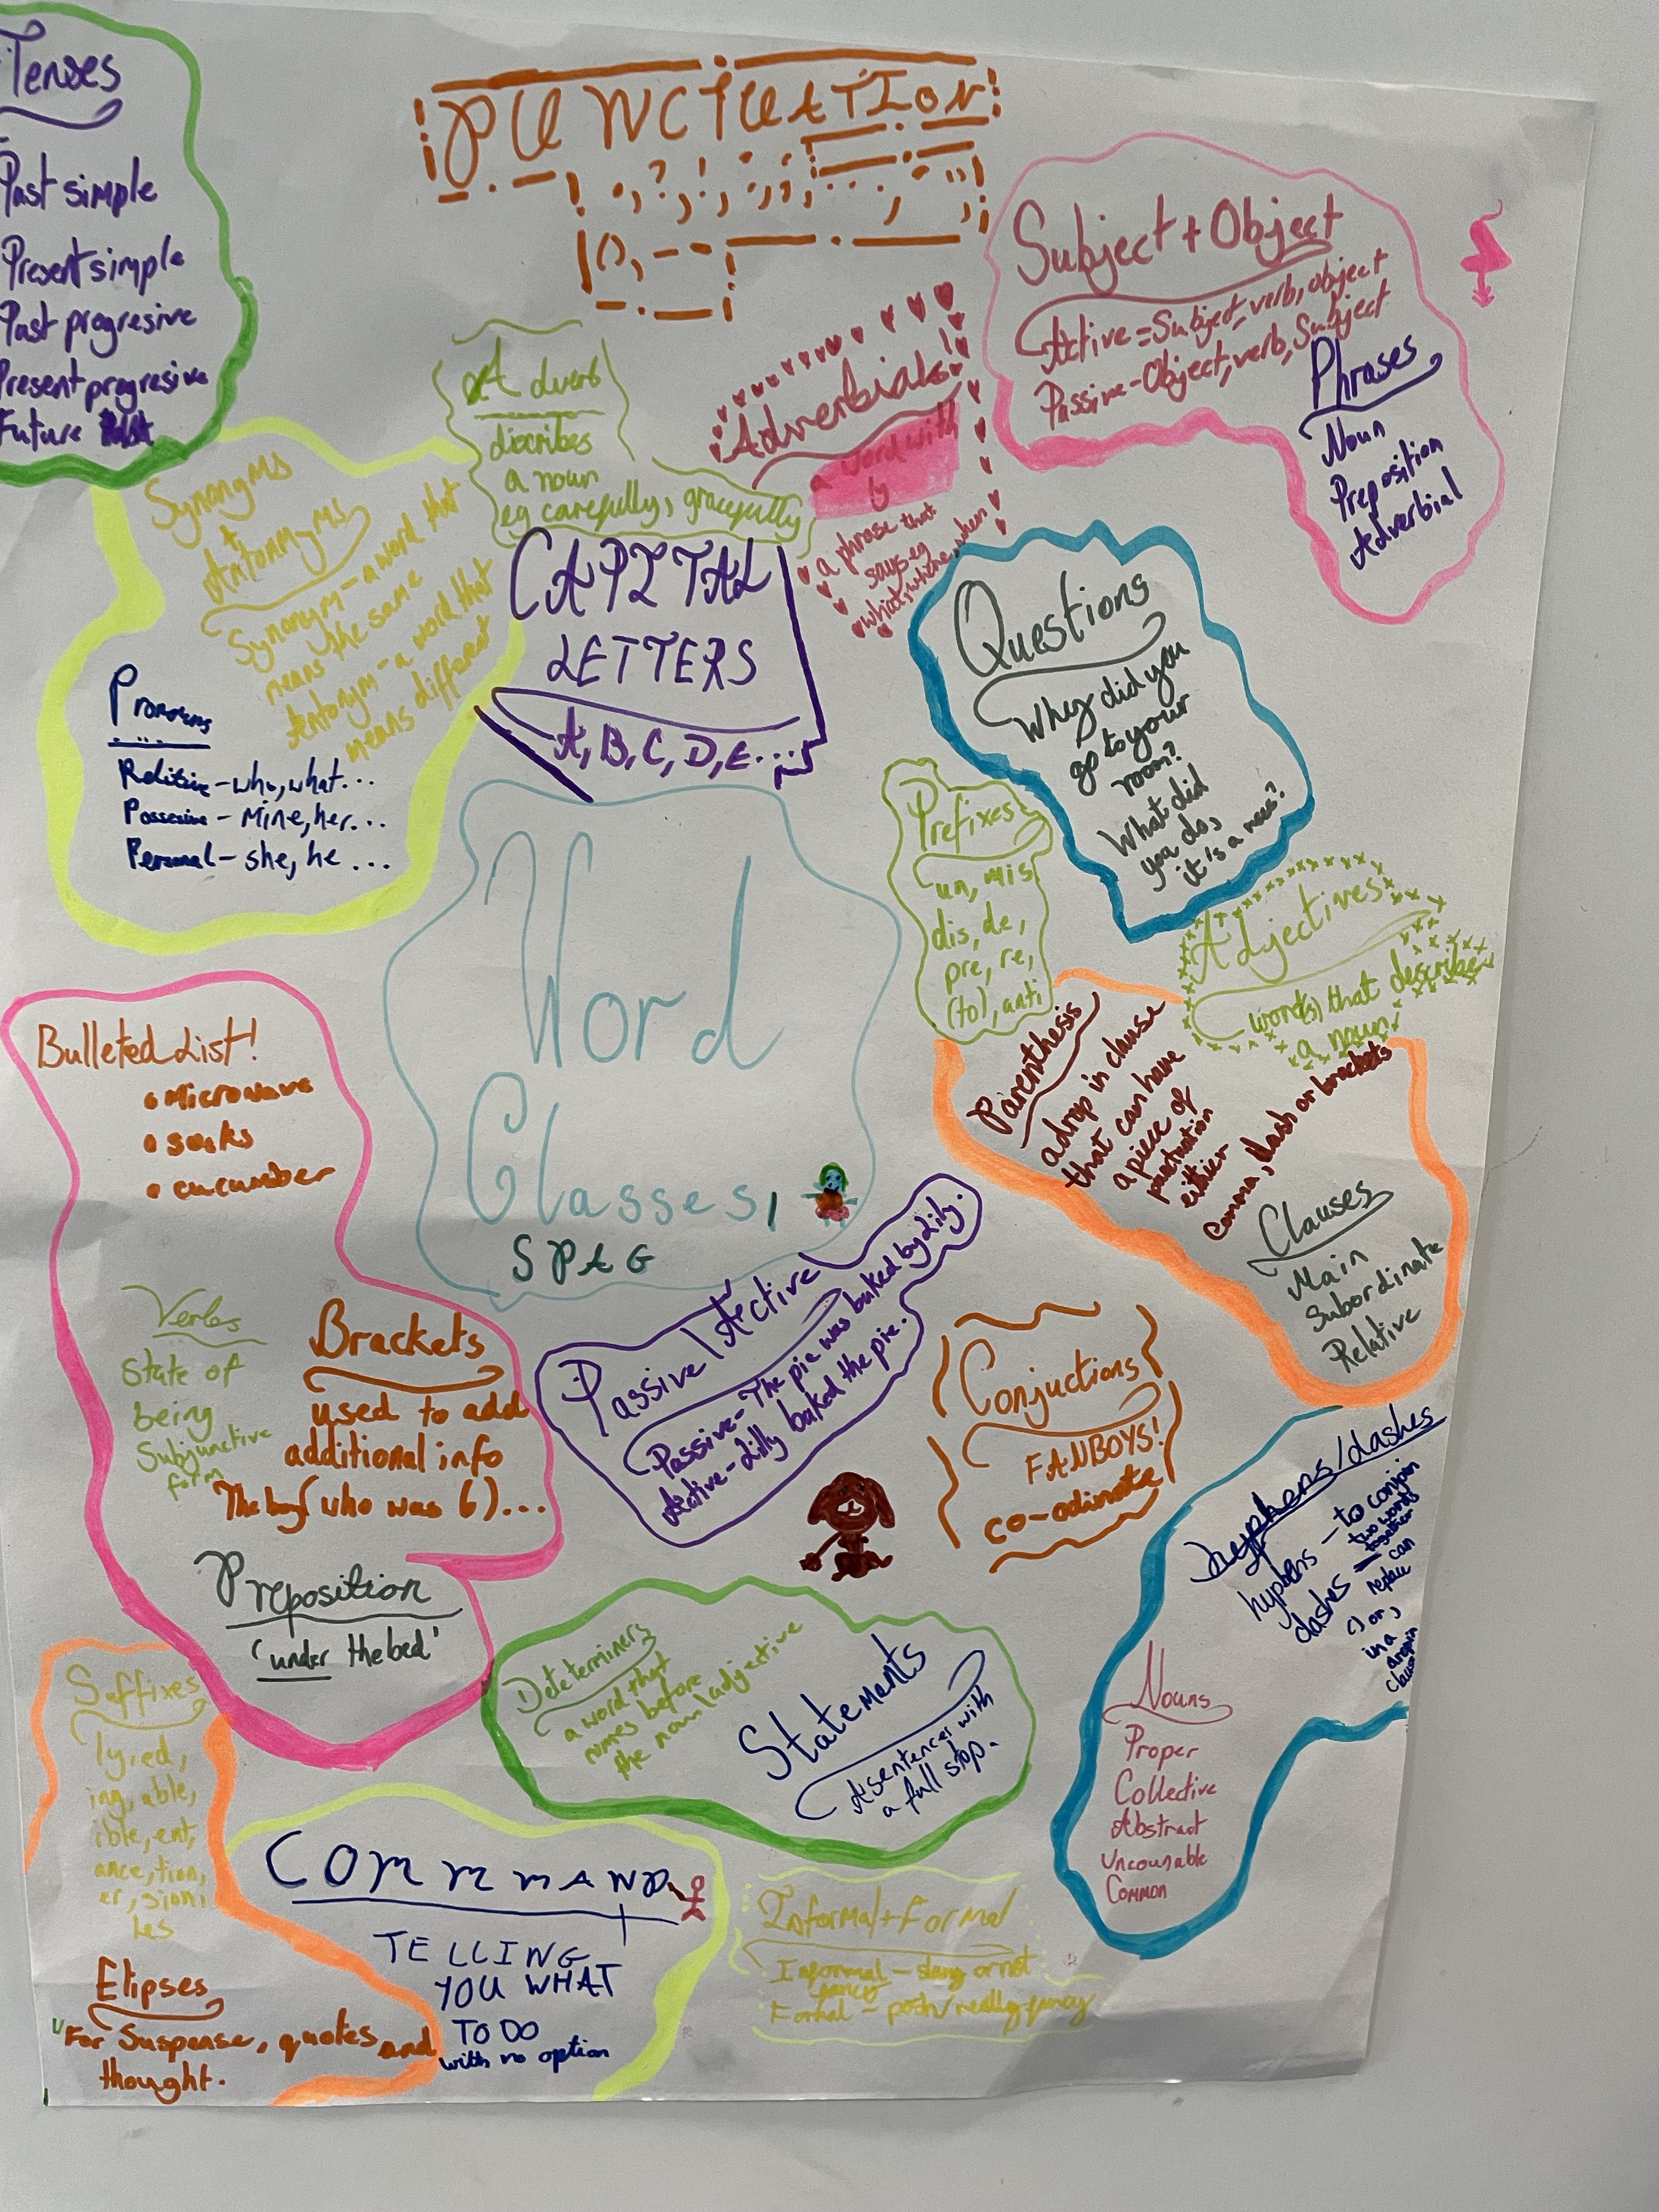 Tenses
Past simple
Present simple
Past progresive
Present progresive
Future
PUNCTUATION
Subject + Object
Active = Subject, verb, object
Passive - Object, verb, Subject
Phrases
Noun
Preposition
Adverbial
Adverb
discribes
a noun
eg carefully, gracefully
Adverbials
a word with
ly
a phrase that
says eg
what, where, when
Synonyms
+
Antonmyms
Synonym - a word that
means the same
Antonym - a word that
means different
Pronouns
Relitive - who, what...
Possesive - Mine, her...
Personal - she, he ...
CAPITAL
LETTERS
A, B, C, D, E...
Questions
Why did you
go to your
room?
What did
you do,
it's a mess?
Prefixes
un, mis
dis, de,
pre, re,
(to), anti
Adjectives
word(s) that describe
a noun
Word
Glasses,
SPAG
Parenthesis
a drop in clause
that can have
a piece of
punctuation
either
comma, dash or brackets
Clauses
Main
Subordinate
Relative
Bulleted List!
• Microwave
• socks
• cucumber
Verbs
State of
being
Subjunctive
form
Brackets
used to add
additional info
The boy (who was 6)...
Preposition
'under the bed'
Passive/Active
Passive - The pie was baked by Lily.
Active - Lilly baked the pie.
Conjuctions
FANBOYS!
co-odinate
hyphens/dashes
hyphens - to conjoin
two words
together
dashes - can
replace
() or ,
in a
drop in
clause
Nouns
Proper
Collective
Abstract
Uncounable
Common
Determiners
a word that
comes before
the noun/adjective
Statements
A sentence with
a full stop.
Suffixes
ly, ed,
ing, able,
ible, ent,
ance, tion,
er, sion,
les
Elipses
For Suspense, quotes and
thought.
COMMAND
TELLING
YOU WHAT
TO DO
with no option
Informal + Formal
Informal - slang or not
fancy
Formal - posh/really fancy